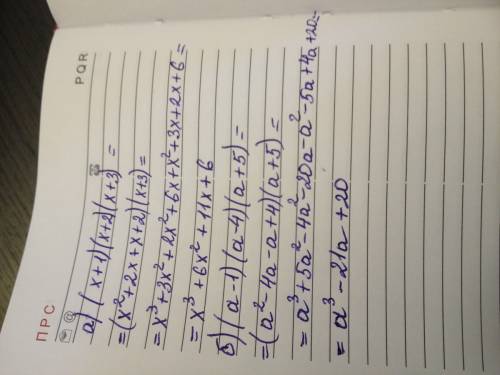 ПРС
PQR
а) (x+1)(x+2)(x+3) =
=(x²+2x+x+2)(x+3)=
=x³+3x²+2x²+6x+x²+3x+2x+6=
=x³+6x²+11x+6
б) (a-1)(a-4)(a+5)=
=(a²-4a-a+4)(a+5)=
=a³+5a²-4a²-20a-a²-5a+4a+20=
=a³-21a+20